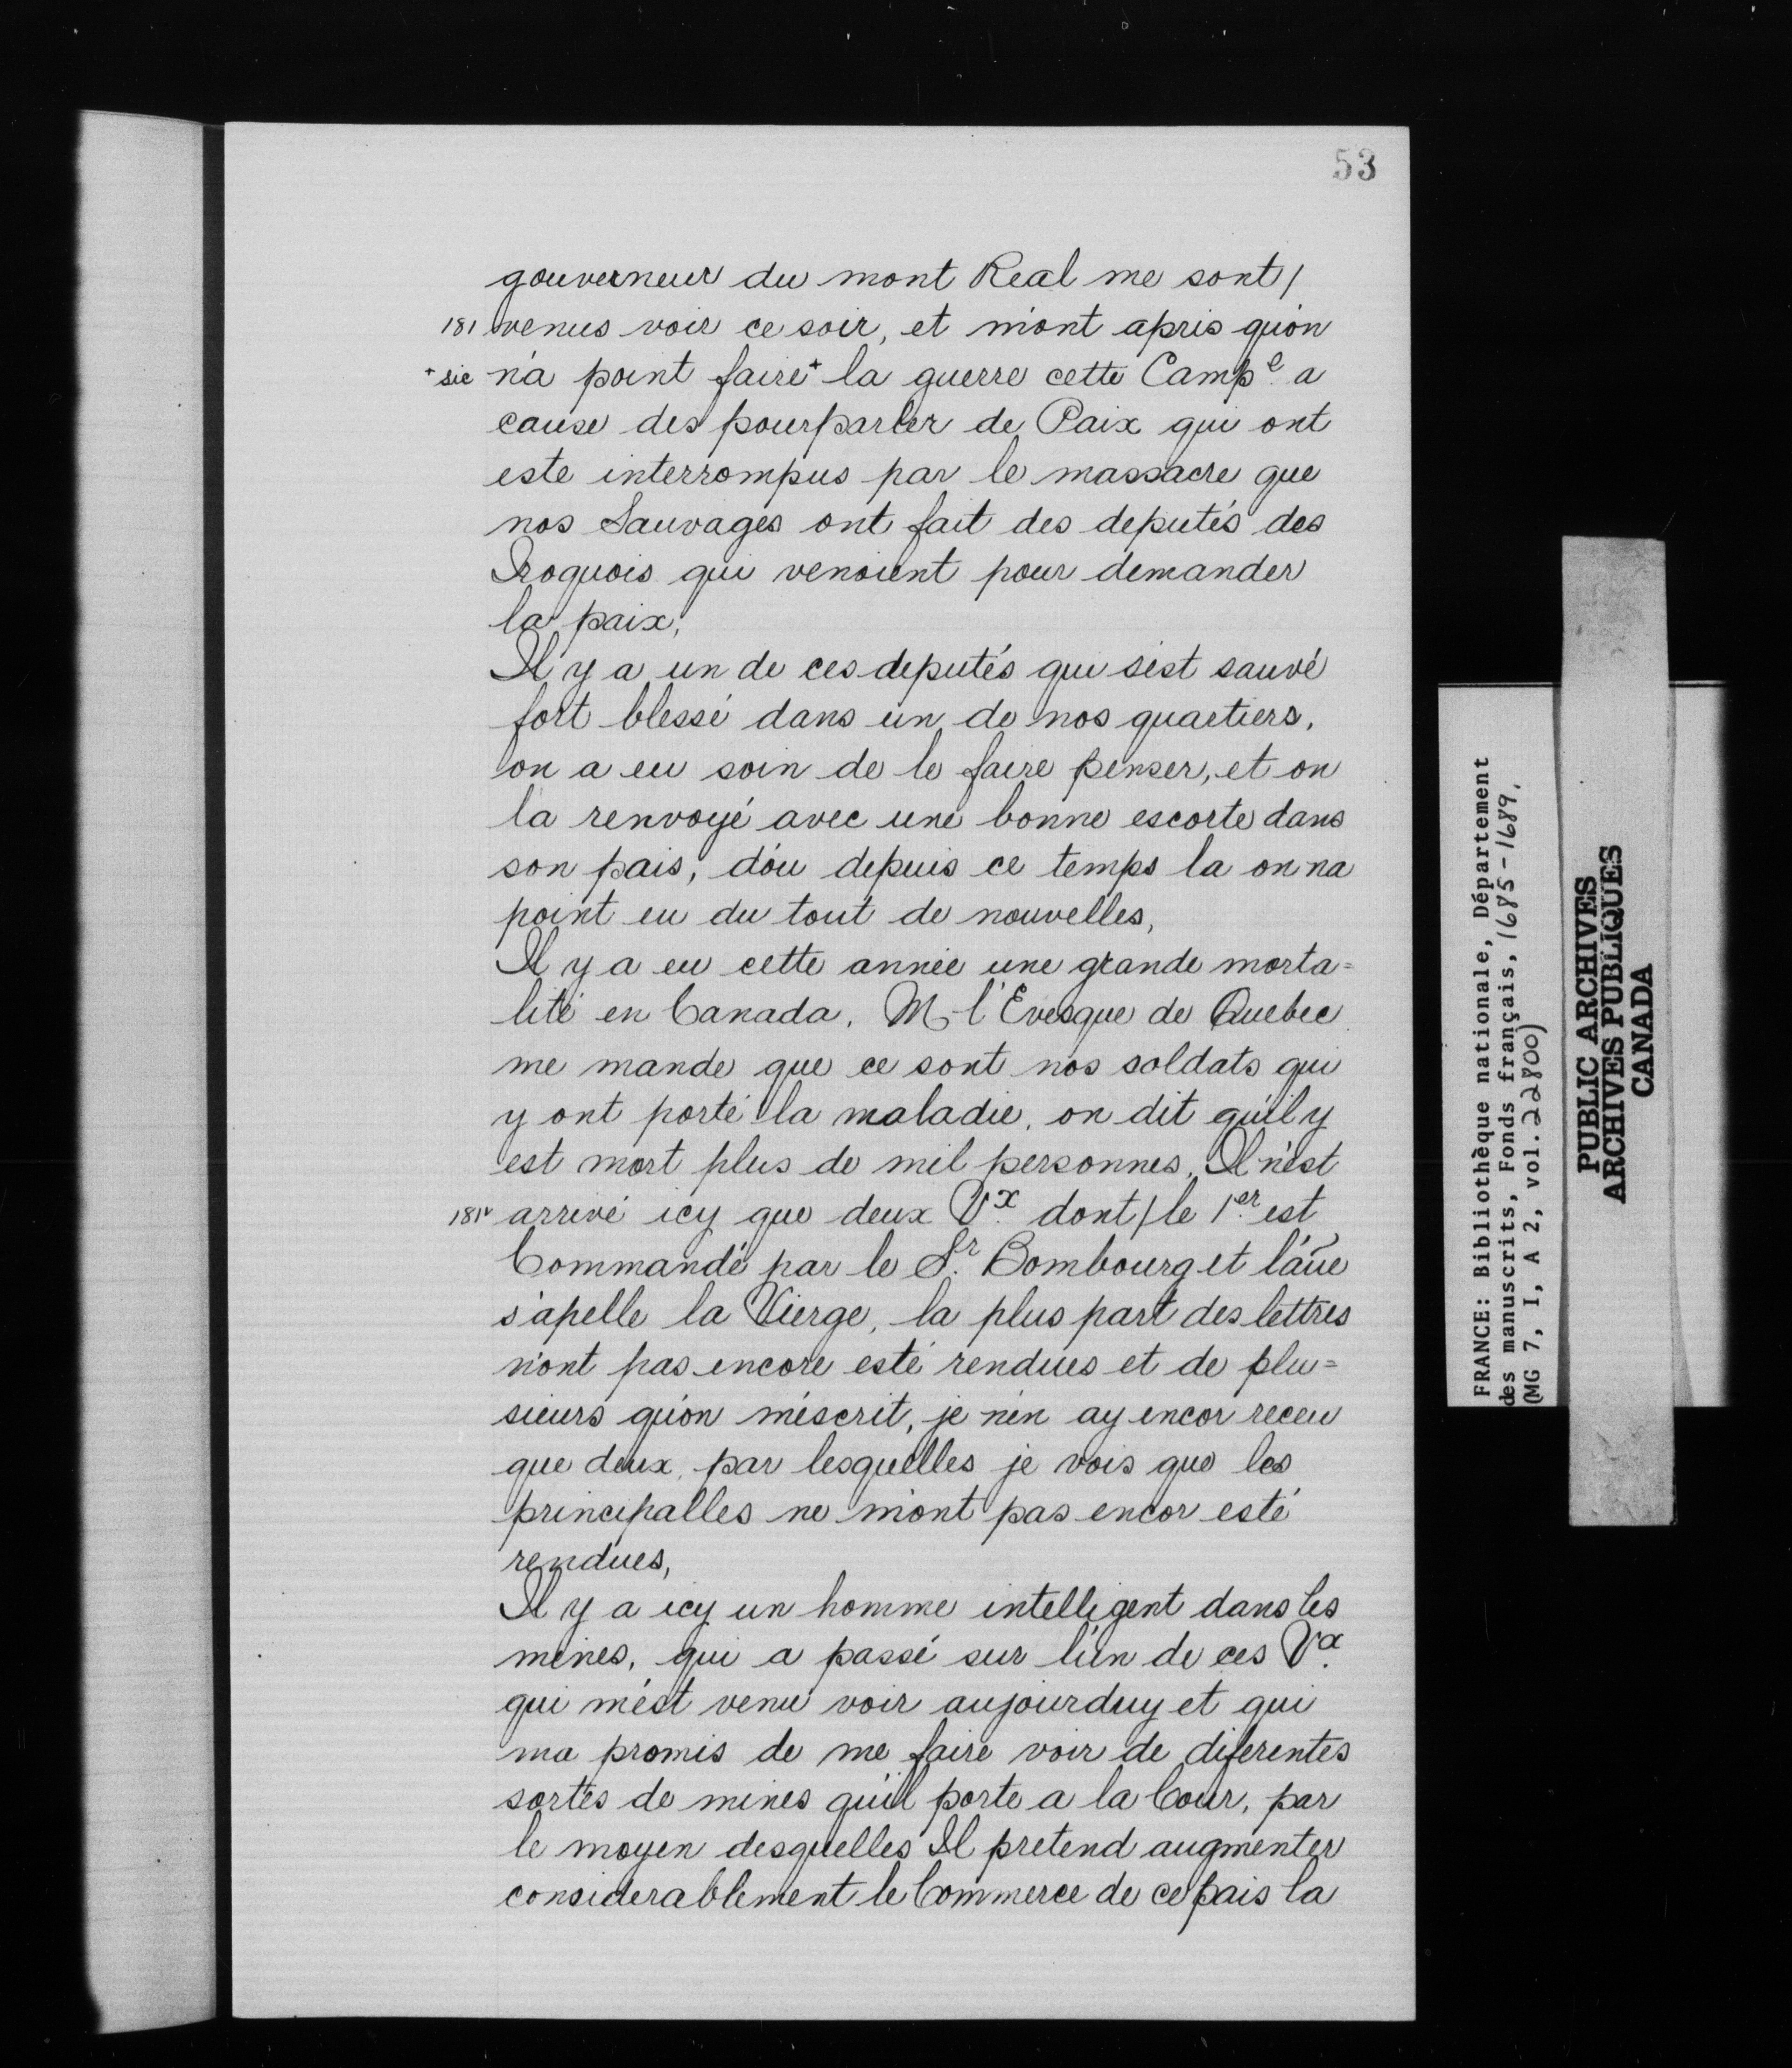 53
gouverneur du mont Real me sont /
181 venus voir ce soir, et m'ont apris qu'on
+ sic n'a point faire + la guerre cette Camp.e a
cause des pourparler de Paix qui ont
este interrompus par le massacre que
nos Sauvages ont fait des deputés des
Iroquois qui venoient pour demander
la paix,
Il y a un de ces deputés qui s'est sauvé
fort blessé dans un de nos quartiers,
on a eu soin de le faire penser, et on
la renvoyé avec une bonne escorte dans
son pais, d'ou depuis ce temps la on na
point eu du tout de nouvelles,
Il y a eu cette année une grande morta=
lité en Canada. M. l'Evesque de Quebec
me mande que ce sont nos soldats qui
y ont porté la maladie, on dit qu'il y
est mort plus de mil personnes. Il n'est
181v arrivé icy que deux V.x dont / le 1.er est
Commandé par le S.r Bombourg et l'aūe
s'apelle la Vierge, la plus part des lettres
n'ont pas encore esté rendues et de plu=
sieurs qu'on m'escrit, je n'en ay encor receu
que deux, par lesquelles je vois que les
principalles ne m'ont pas encor esté
rendues,
Il y a icy un homme intelligent dans les
mines, qui a passé sur l'un de ces V.x
qui m'est venu voir aujourduy et qui
ma promis de me faire voir de diferentes
sortes de mines qu'il porte a la Cour, par
le moyen desquelles Il pretend augmenter
considerablement le Commerce de ce pais la
FRANCE: Bibliothèque nationale, Département
des manuscrits, Fonds français, 1685-1689.
(MG 7, I, A 2, vol. 22800)
PUBLIC ARCHIVES
ARCHIVES PUBLIQUES
CANADA